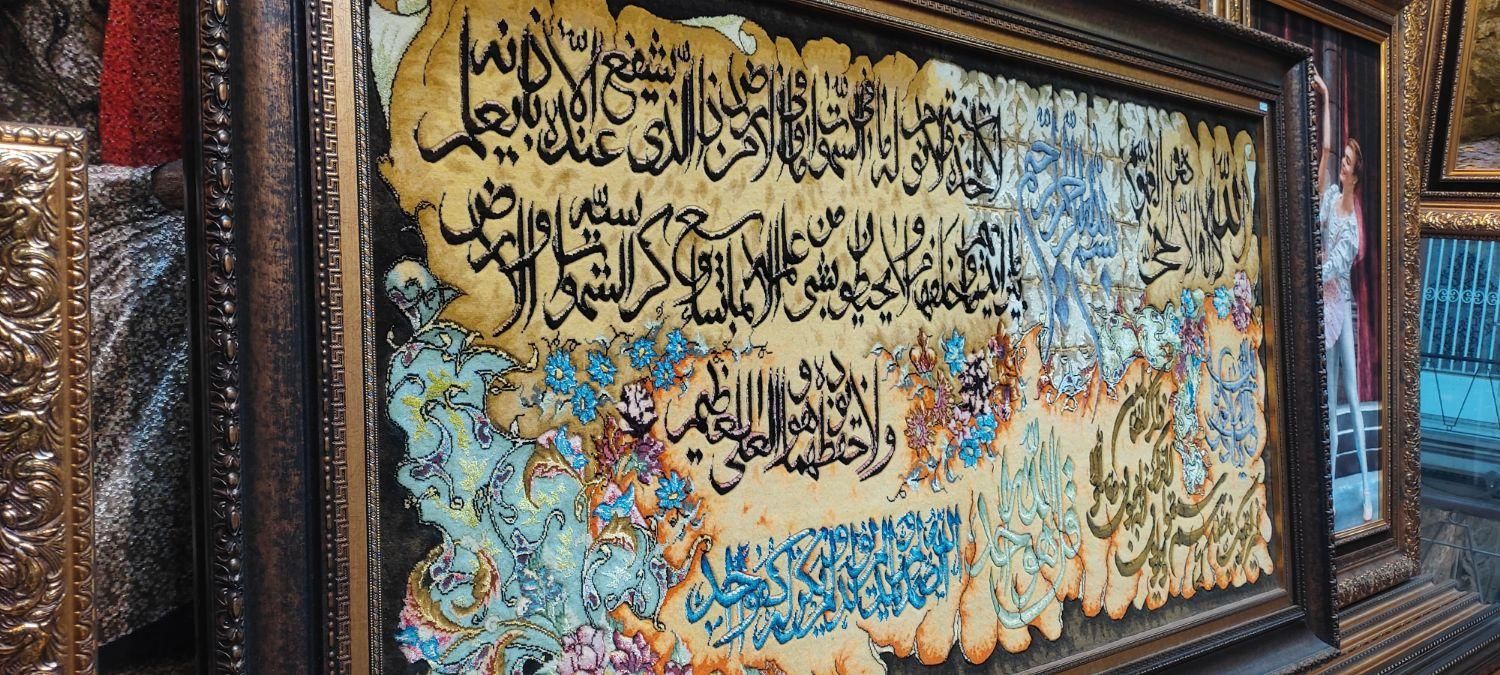 بسم الله الرحمن الرحیم
الله لا اله الا هو الحی القیوم
لا تاخذه سنة ولا نوم له ما فی السموات وما فی الارض من ذا الذی یشفع عنده الا باذنه یعلم
ما بین ایدیهم وما خلفهم ولا یحیطون بشیء من علمه الا بما شاء وسع کرسیه السموات والارض
ولا یؤده حفظهما وهو العلی العظیم
قل هو الله احد
الله الصمد لم یلد ولم یولد ولم یکن له کفوا احد